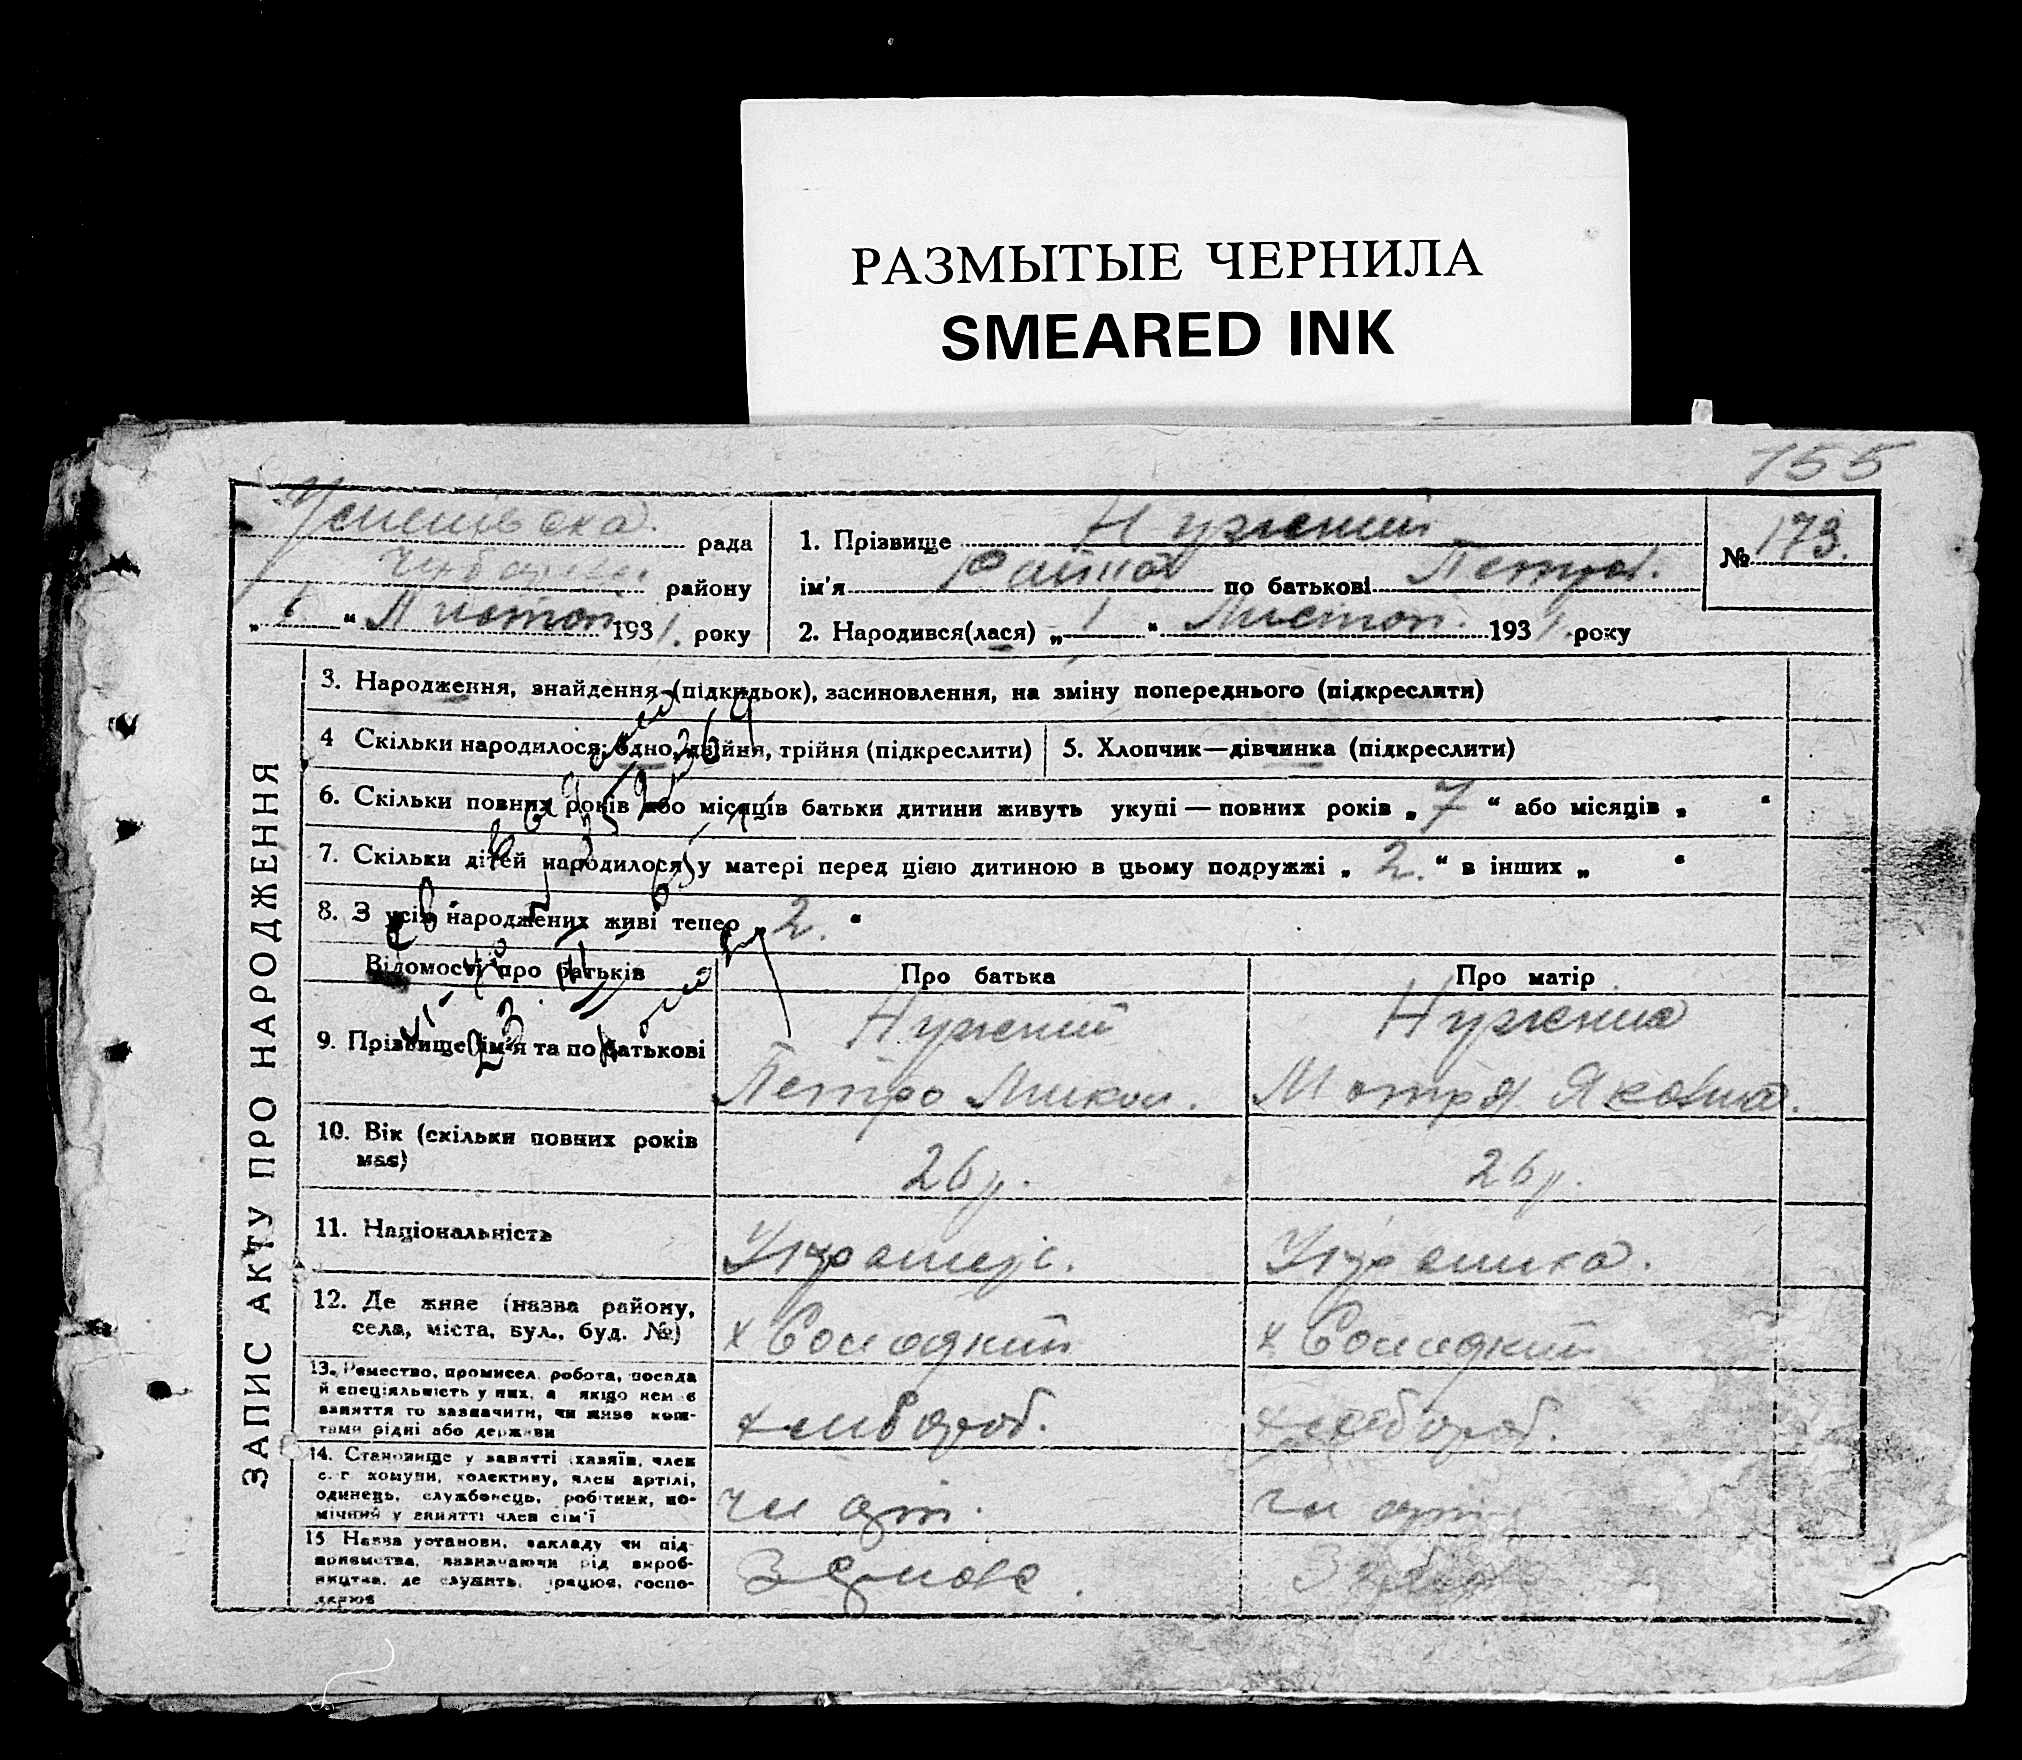 РАЗМЫТЫЕ ЧЕРНИЛА
SMEARED INK
155
рада
району
" 6 " Листоп 1931. року
1. Прізвище Нужний
ім'я по батькові Петров.
2. Народився(лася) „ 1 " Листоп. 1931. року
№ 173.
ЗАПИС АКТУ ПРО НАРОДЖЕННЯ
3. Народження, знайдення (підкидьок), засиновлення, на зміну попереднього (підкреслити)
4 Скільки народилося: одно, двійня, трійня (підкреслити)
5. Хлопчик—дівчинка (підкреслити)
6. Скільки повних років або місяців батьки дитини живуть укупі — повних років „ 7 " або місяців „ "
7. Скільки дітей народилося у матері перед цією дитиною в цьому подружжі „ 2. " в інших „ "
8. З усіх народжених живі тепер „ 2. "
Відомості про батьків
Про батька
Про матір
9. Прізвище ім'я та по батькові
Нужний
Петро Микол.
Нужния
Мотря Яковна.
10. Вік (скільки повних років
має)
26 р.
26 р.
11. Національність
Українец.
Українка.
12. Де живе (назва району,
села, міста, вул., буд. №)
х Солодкий
х Солодкий
13. Ремество, промисел, робота, посада
й спеціяльність у них, а якщо нем є
заняття то зазначити, чи живе кош-
тами рідні або держави
хлибороб.
хлебороб.
14. Становище у занятті (хазяїн, член
с. г. комуни, колективу, член артілі,
одинець, службовець, робітник, по-
мічний у занятті член сім'ї
чл арт.
чл арт.
15 Назва установи, закладу чи під-
приємства, зазначаючи рід вироб-
ництва, де служить, працює, госпо-
дарює